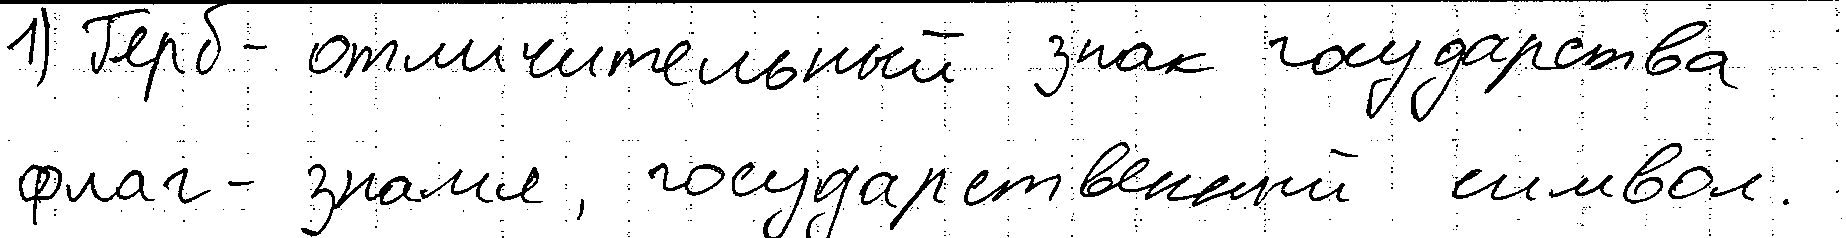 1) Герб - отличительный знак государства
флаг - знамя, государственный символ.